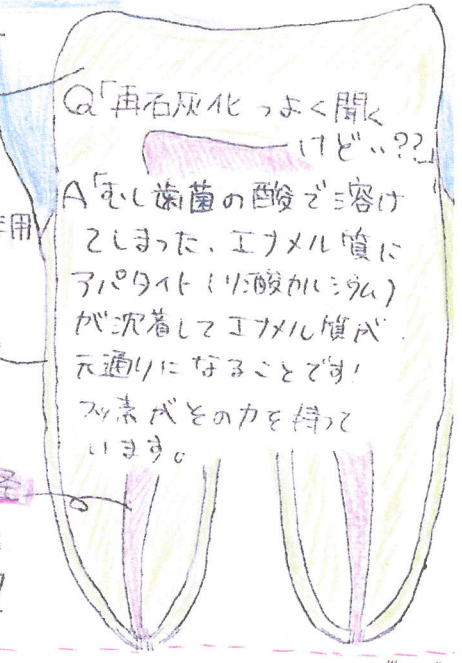 Q「再石灰化ってよく聞く
けど、、??」
A「むし歯菌の酸で溶け
てしまった、エナメル質に
アパタイト(リン酸カルシウム)
が沈着してエナメル質が
元通りになることです!
フッ素がその力を持って
います。
用